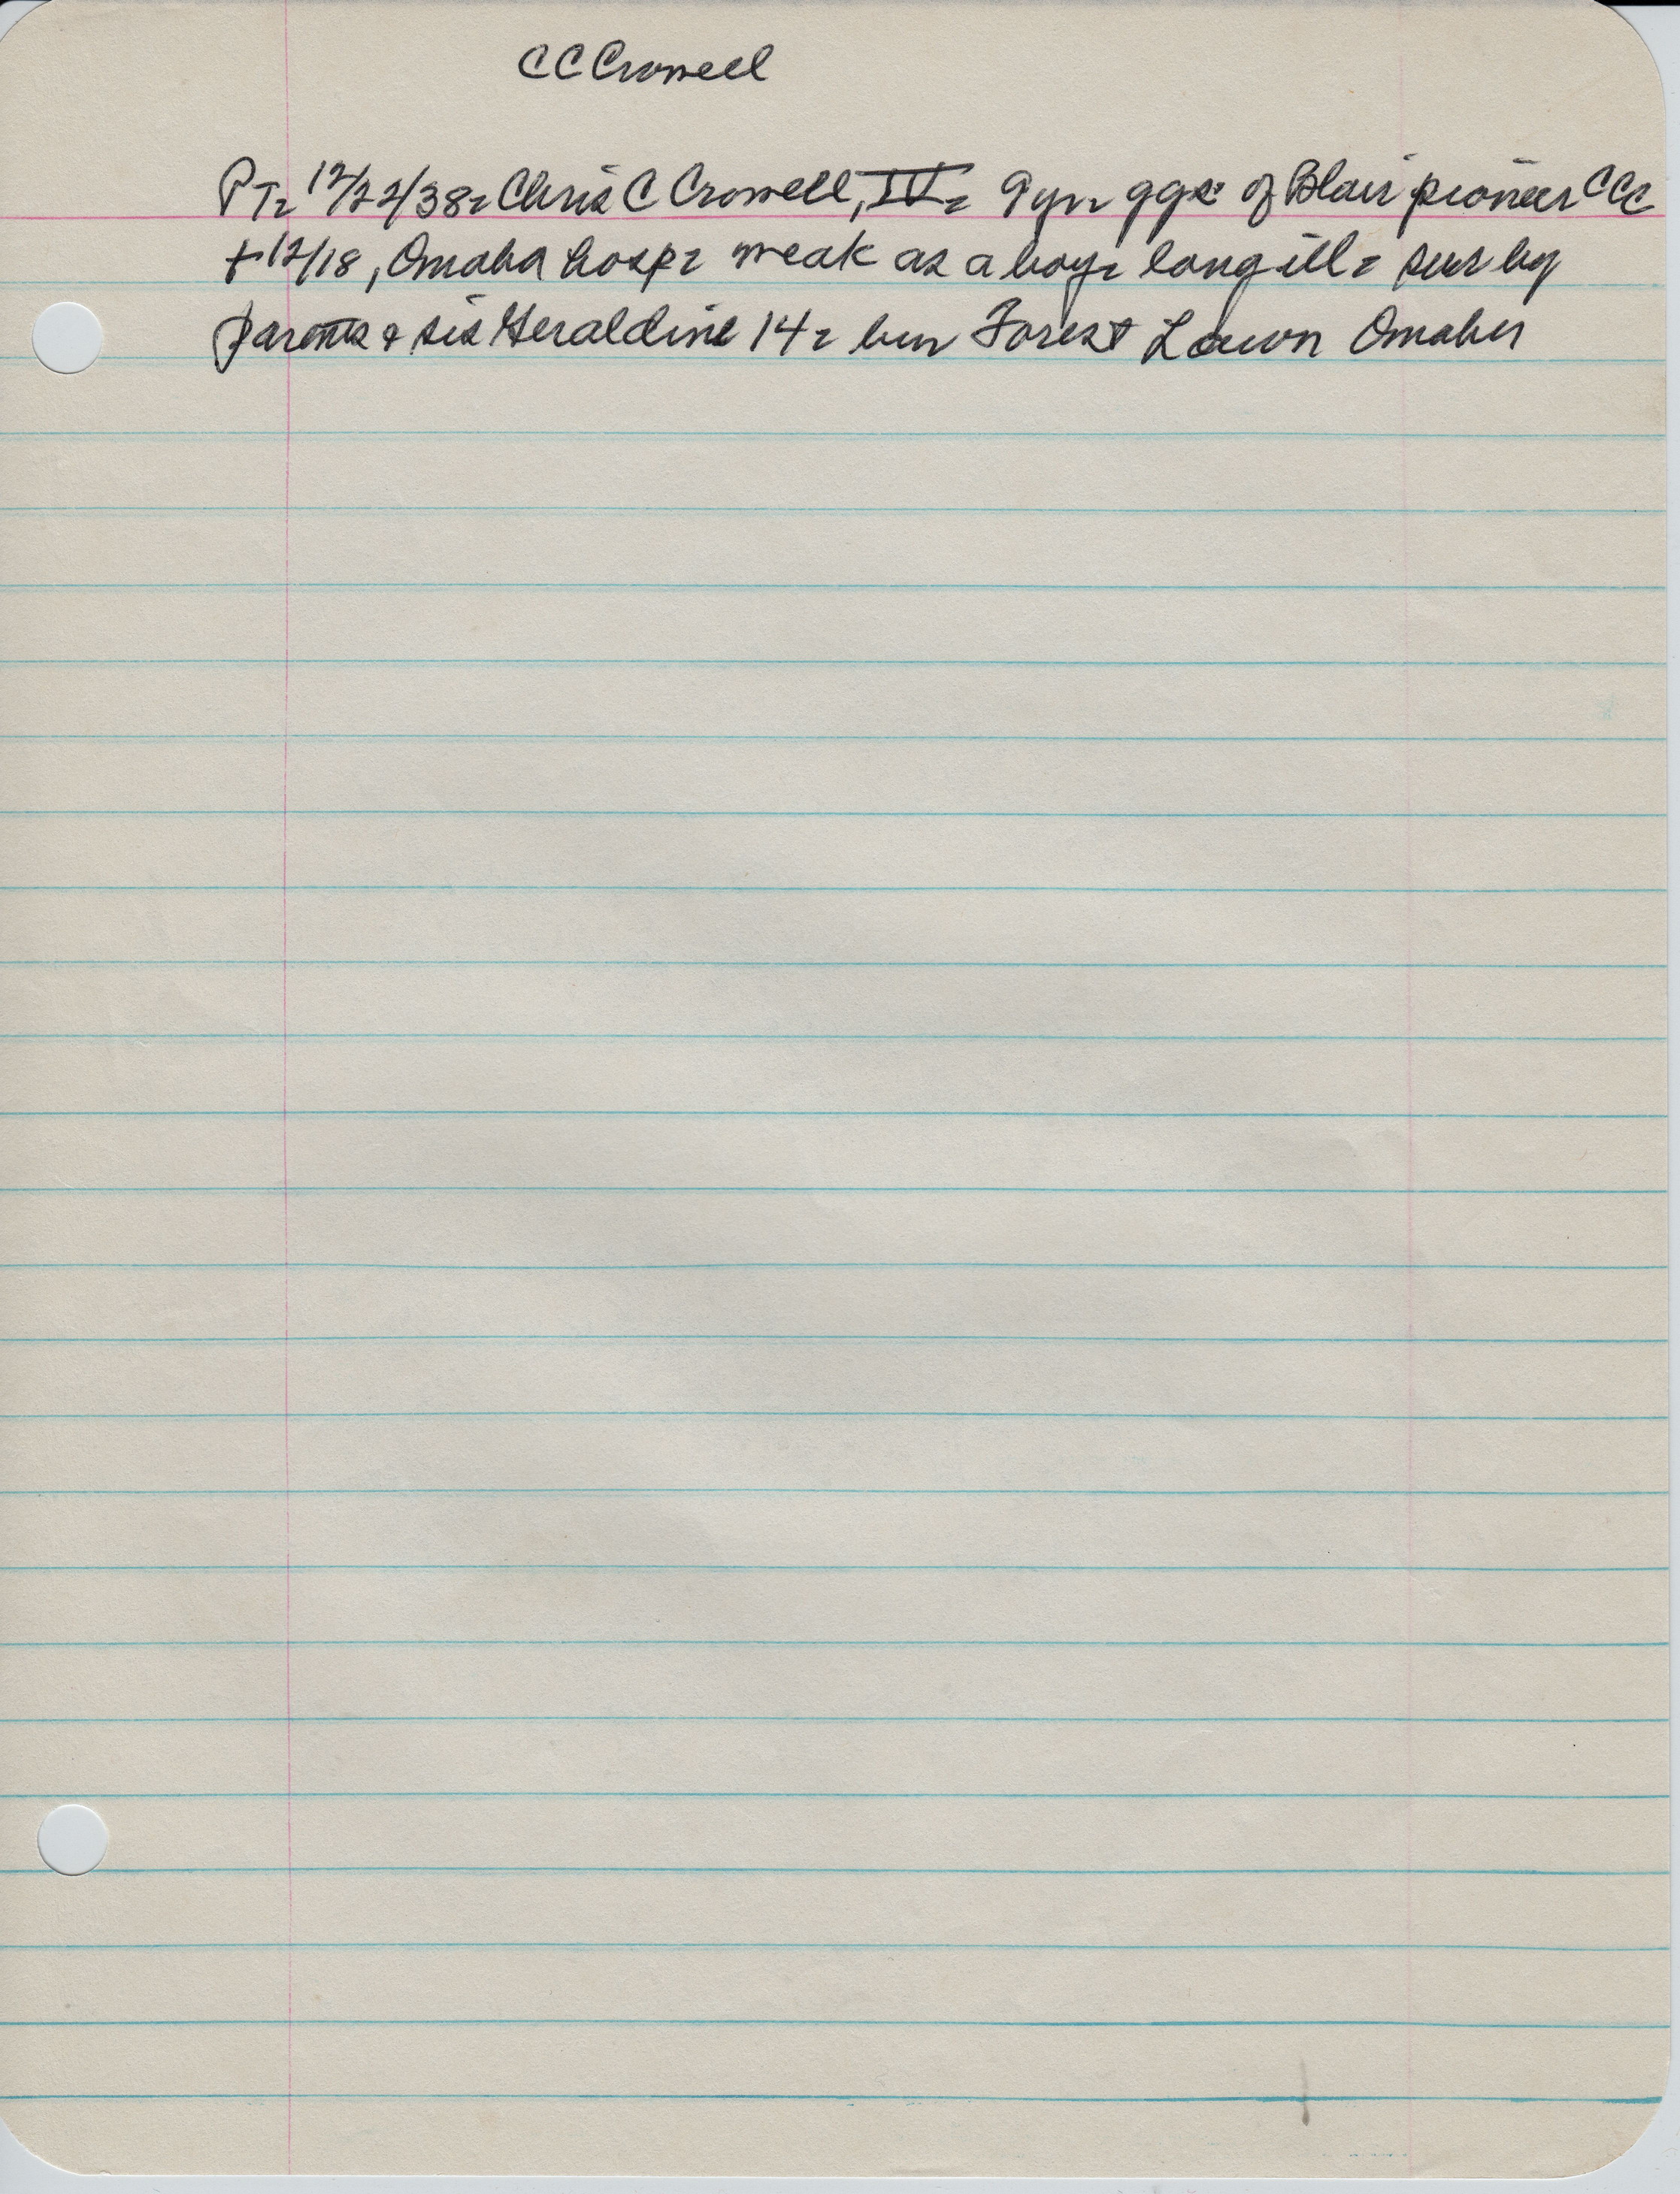 CC Crowell
PT- 12/22/38- Chris C Crowell, IV- 9 yr- ggs of Blair pioneer CCC
+ 12/18, Omaha hosp- weak as a boy- long ill- sur by
parents & sis Geraldine 14- bur Forest Lawn Omaha